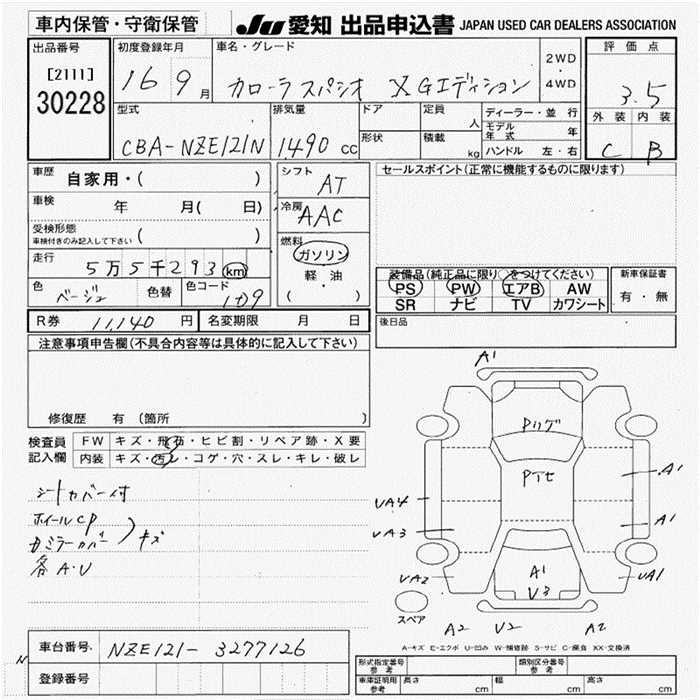 車内保管・守衛保管
JU 愛知 出品申込書 JAPAN USED CAR DEALERS ASSOCIATION
出品番号
[2111]
30228
初度登録年月
16 9月
車名・グレード
カローラスパシオ X Gエディション
2WD
・
4WD
評価点
3.5
外装 内装
C B
型式
CBA-NZE121N
排気量
1490 cc
ドア
形状
定員 人
積載 kg
ディーラー・並行
モデル年式 年
ハンドル 左・右
車歴 自家用・( )
車検 年 月( 日)
受検形態
車検付きのみ記入して下さい ( )
走行 5万5千293km
色 ベージュ 色替 色コード
シフト AT
冷房 AAC
燃料
ガソリン
・
軽・油
( ・ )
セールスポイント(正常に機能するものに限ります)
装備品(純正品に限り○をつけてください)
PS PW エアB AW
SR ナビ TV カワシート
新車保証書
有・無
R券 11,140 円 名変期限 月 日
後日品
注意事項申告欄(不具合内容等は具体的に記入して下さい)
修復歴 有 (箇所 )
検査員記入欄
FW キズ・飛石・ヒビ割・リペア跡・X要
内装 キズ・汚レ・コゲ・穴・スレ・キレ・破レ
シートカバー付
ホイールCP
ミラーカバー
キズ
各A・U
A1
Pリグ
PTセ
UA4
UA3
UA2
A1
A1
UA1
A1
U3
A2 U2 A2
スペア
A-キズ E-エクボ U-凹み W-補修跡 S-サビ C-腐食 XX-交換済
車台番号 NZE121-3277126
登録番号
N
形式指定番号
参考
類別区分番号
参考
車庫証明用
参考
長さ cm 幅 cm 高さ cm